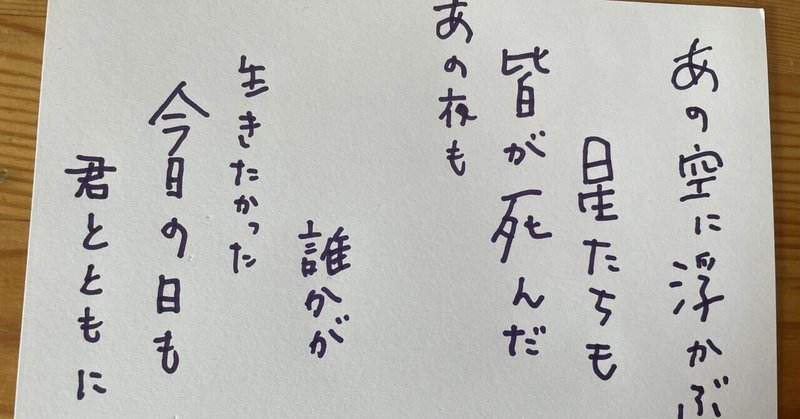 あの空に浮かぶ
星たちも
皆が死んだ
あの夜も
誰かが
生きたかった
今日の日も
君とともに